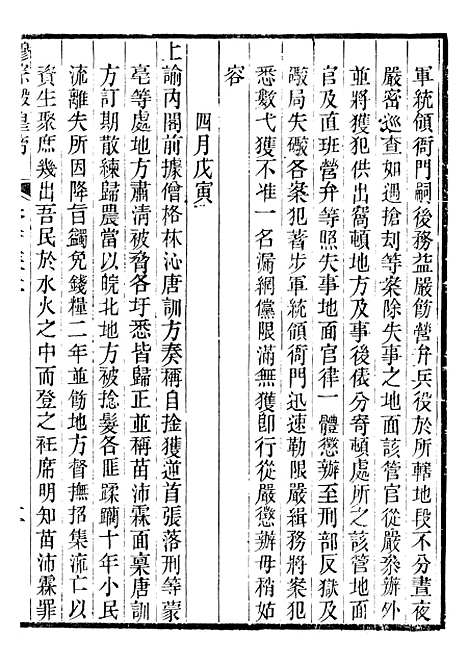 軍統領衙門嗣後務益嚴飭營弁兵役於所轄地段不分晝夜
嚴密巡查如遇搶刦等案除失事之地面該管官從嚴叅辦外
並將獲犯供出窩頓地方及事後俵分寄頓處所之該管地面
官及直班營弁等照失事地面官律一體懲辦至刑部反獄及
礮局失礮各案犯著步軍統領衙門迅速勒限嚴緝務將各犯
悉數弋獲不准一名漏網儻限滿無獲卽行從嚴懲辦毋稍姑
容
四月戊寅
上諭內閣前據僧格林沁唐訓方奏稱自捦獲逆首張落刑等蒙
亳等處地方肅清被脅各圩悉皆歸正並稱苗沛霖面稟唐訓
方訂期散練歸農當以皖北地方被捻髮各匪蹂躪十年小民
流離失所因降旨蠲免錢糧二年並飭地方督撫招集流亡以
資生聚庶幾出吾民於水火之中而登之衽席明知苗沛霖罪
穆宗毅皇帝